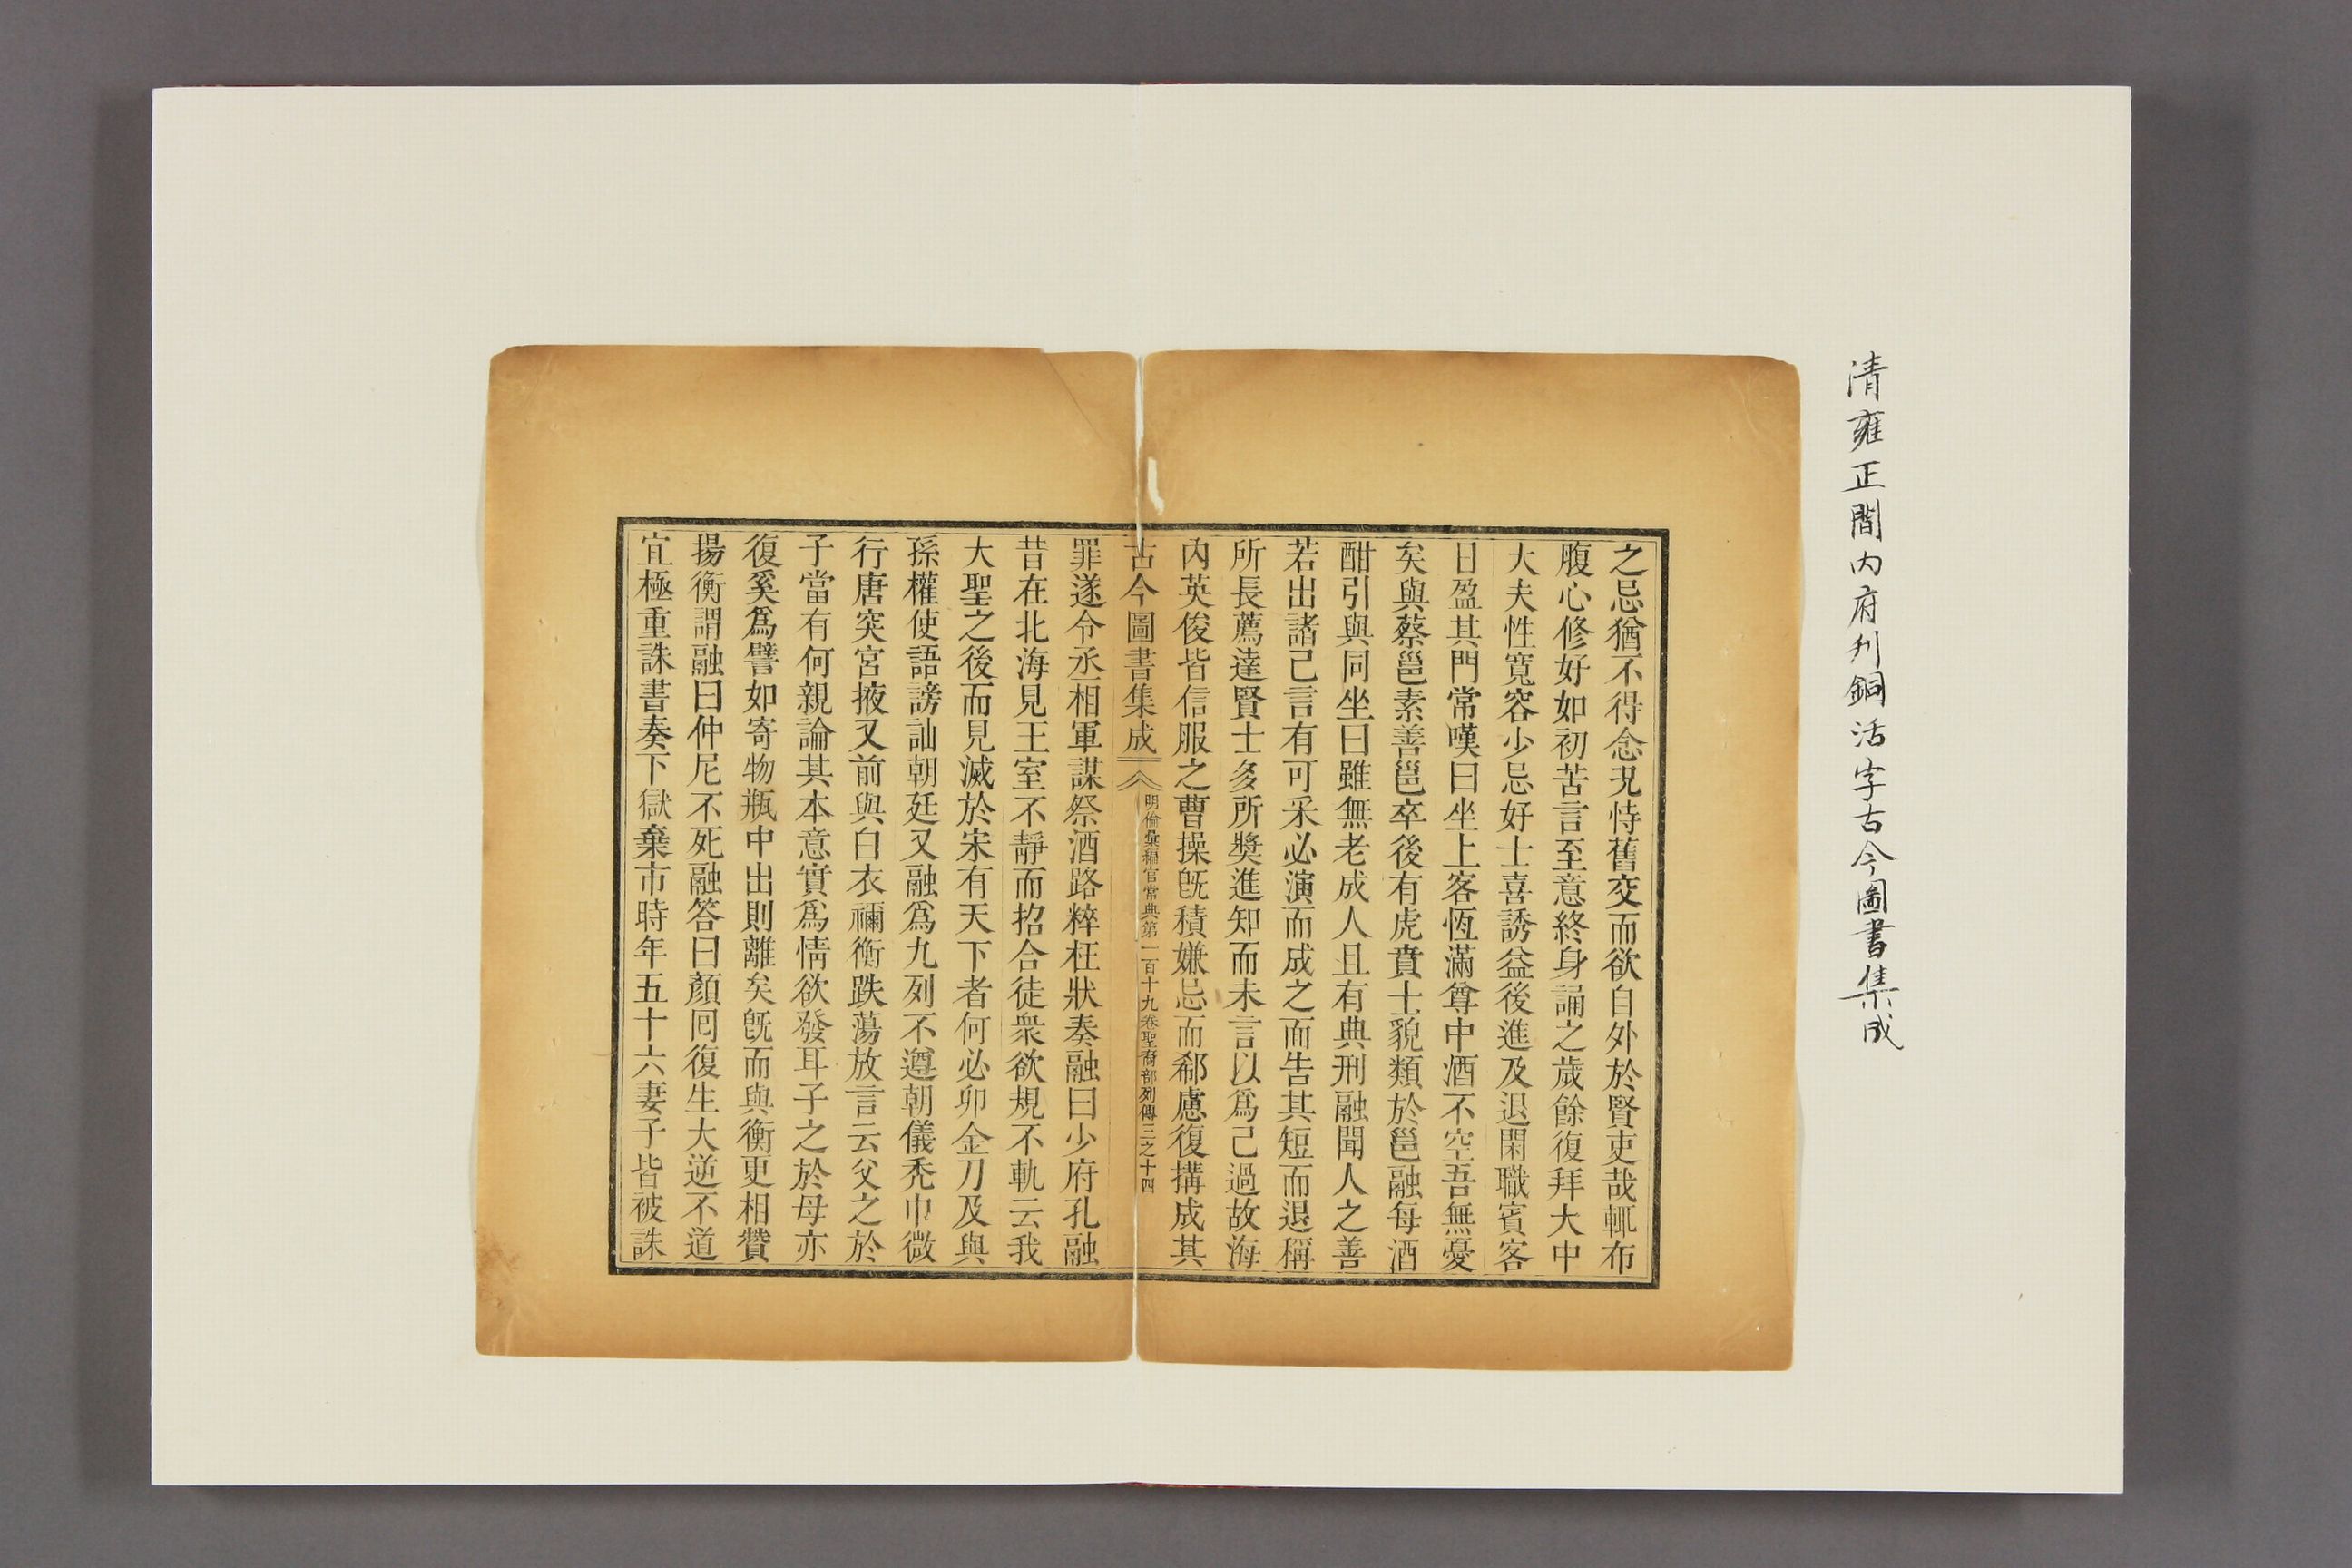 清雍正間內府刋銅活字古今圖書集成
之忌猶不得念况恃舊交而欲自外於賢吏哉輒布
腹心修好如初苦言至意終身誦之歲餘復拜大中
大夫性寬容少忌好士喜誘益後進及退閑職賓客
日盈其門常嘆曰坐上客恆滿尊中酒不空吾無憂
矣與蔡邕素善邕卒後有虎賁士貌類於邕融每酒
酣引與同坐曰雖無老成人且有典刑融聞人之善
若出諸己言有可采必演而成之而告其短而退稱
所長薦達賢士多所奬進知而未言以爲己過故海
內英俊皆信服之曹操旣積嫌忌而郗慮復搆成其
古今圖書集成
明倫彙編官常典第一百十九卷聖裔部列傳三之十四
罪遂令丞相軍謀祭酒路粹枉狀奏融曰少府孔融
昔在北海見王室不靜而招合徒衆欲規不軌云我
大聖之後而見滅於宋有天下者何必卯金刀及與
孫權使語謗訕朝廷又融爲九列不遵朝儀禿巾微
行唐突宮掖又前與白衣禰衡跌蕩放言云父之於
子當有何親論其本意實爲情欲發耳子之於母亦
復奚爲譬如寄物瓶中出則離矣旣而與衡更相贊
揚衡謂融曰仲尼不死融答曰顏囘復生大逆不道
宜極重誅書奏下獄棄市時年五十六妻子皆被誅